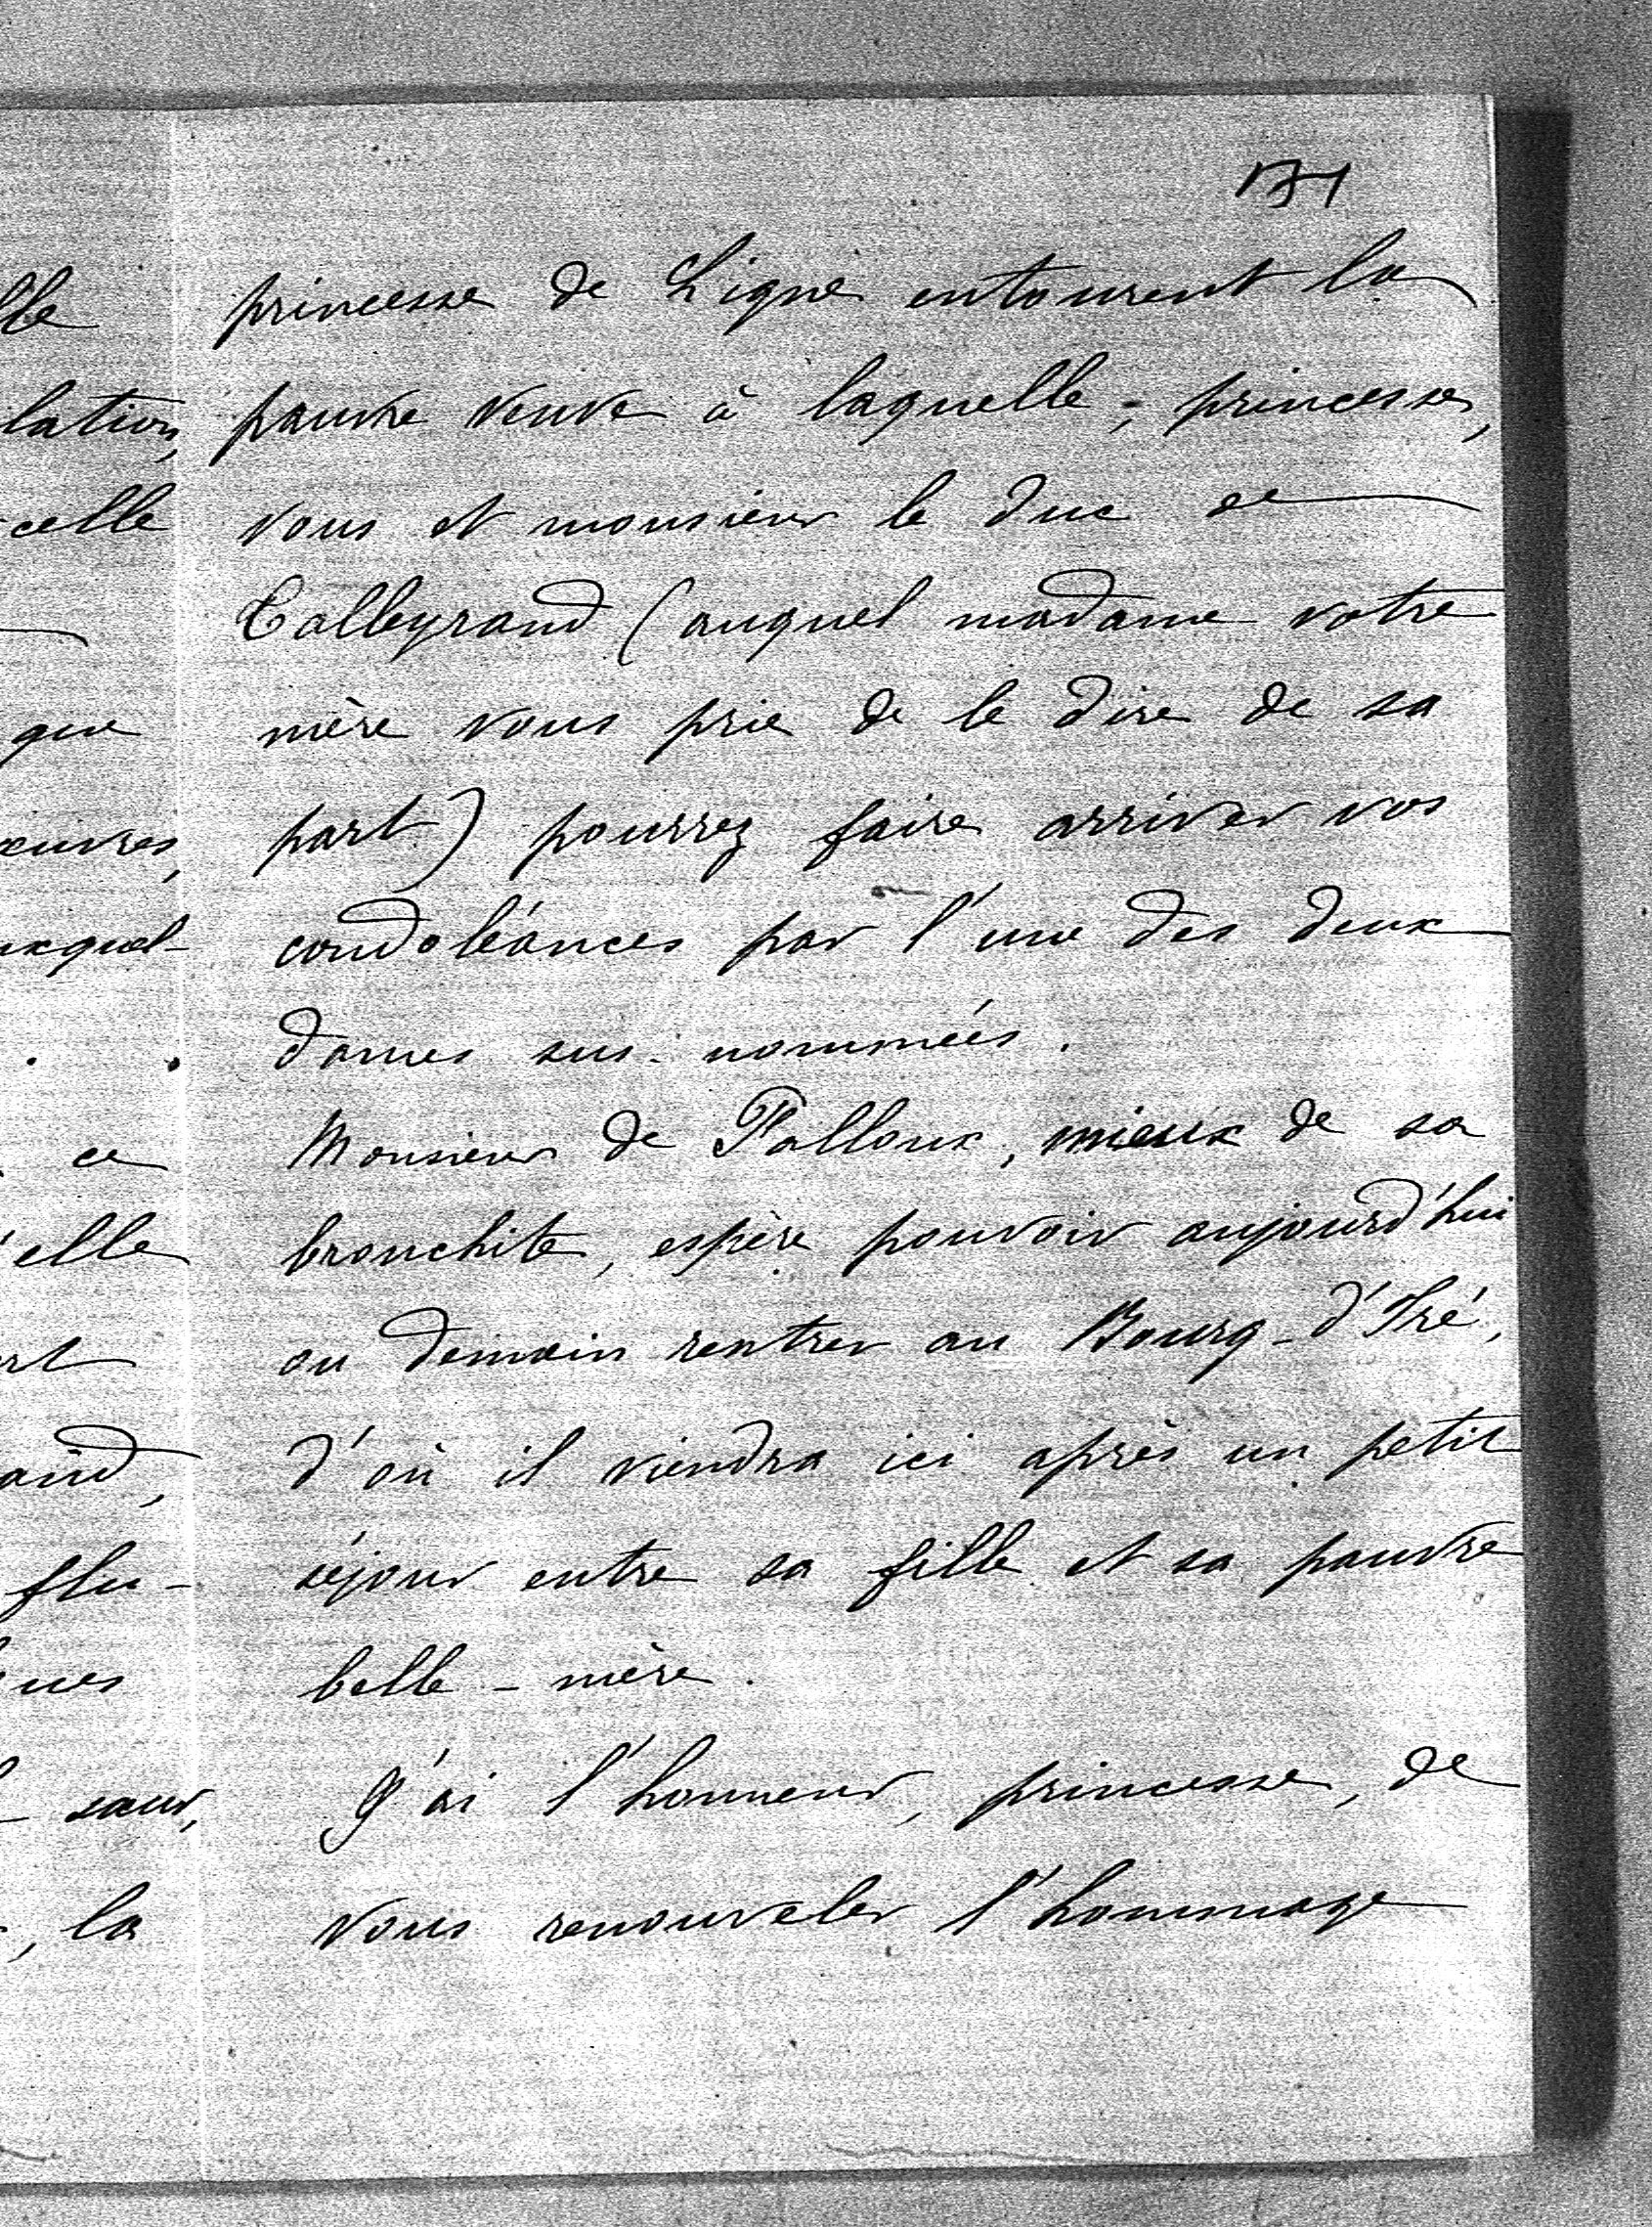 171
princesse de Ligne entourent la
pauvre veuve à laquelle, princesse,
vous et monsieur le duc de
Talleyrand (auquel madame votre
mère vous prie de le dire de sa
part) pourrez faire arriver vos
condoléances par l'une des deux
dames sus-nommées.
Monsieur de Falloux, mieux de sa
bronchite, espère pouvoir aujourd'hui
ou demain rentrer au Bourg-d'Iré,
d'où il viendra ici après un petit
séjour entre sa fille et sa pauvre
belle-mère.
J'ai l'honneur, princesse, de
vous renouveler l'hommage
lle
lation,
celle
que
œuvres,
uxquel-
ce
'elle
rt
and,
flu-
ues
sœur,
, la